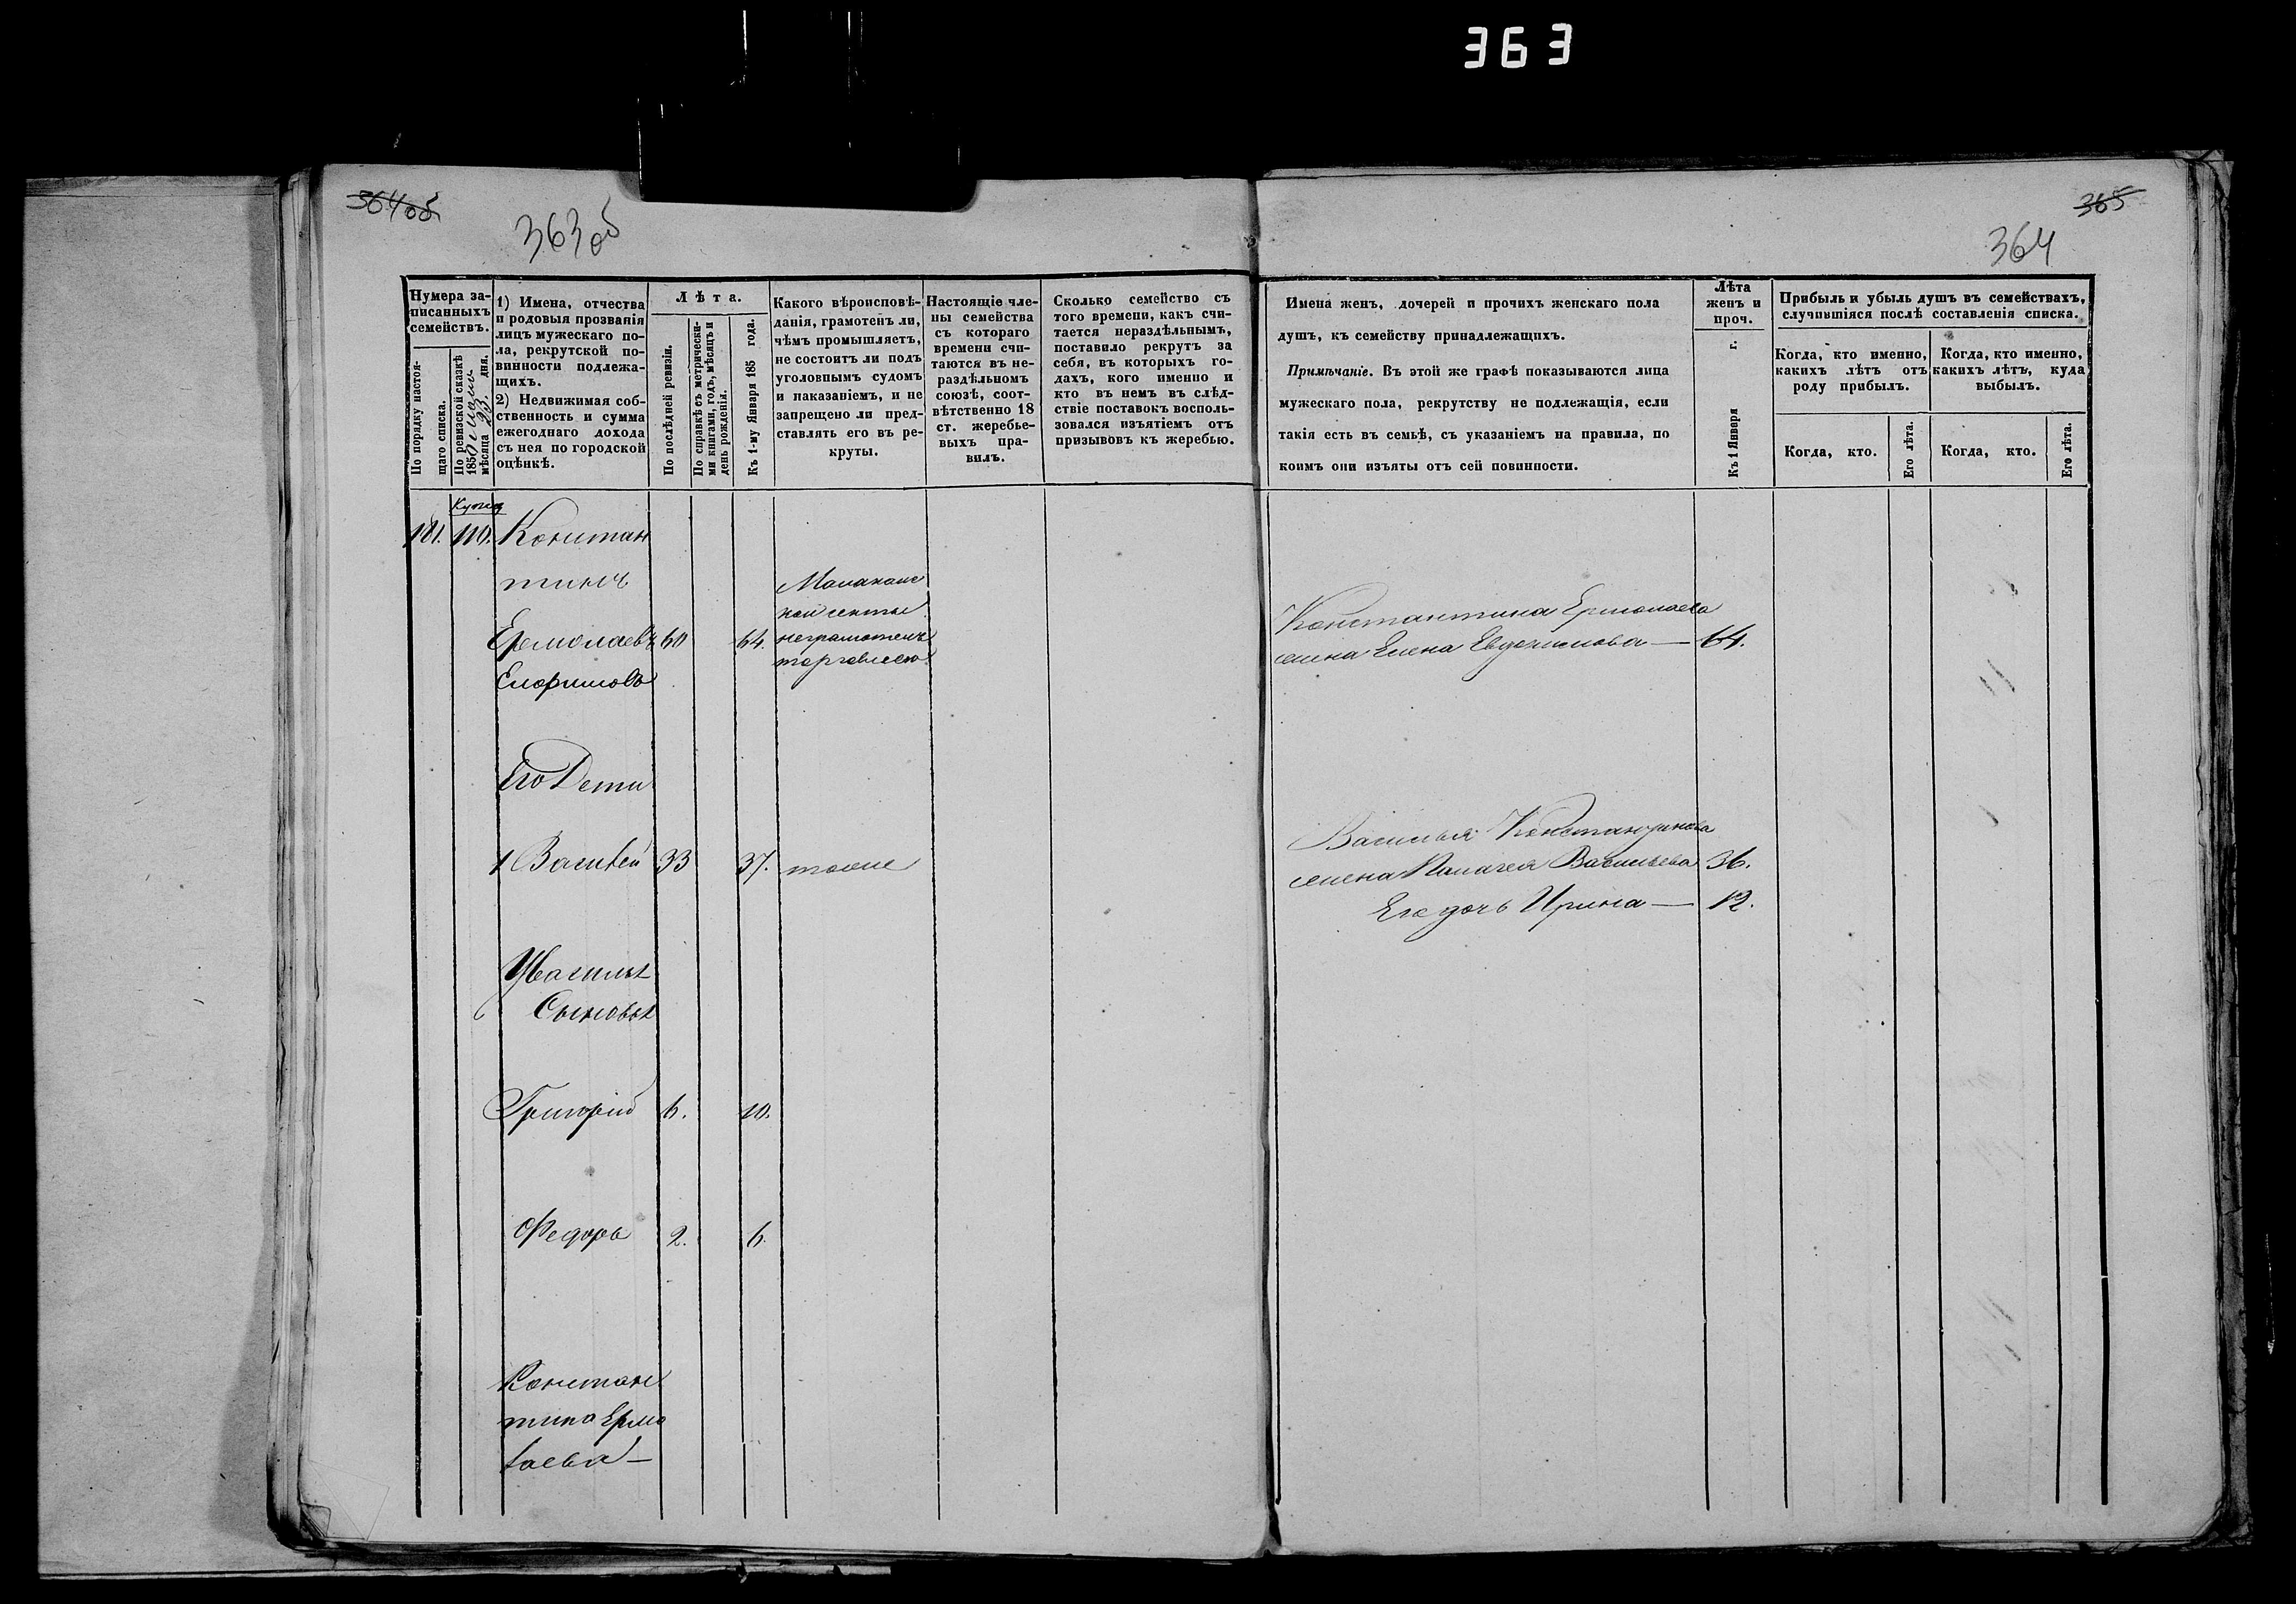 363
364об
363об
365
364
Нумера за-
писанныхъ
семействъ.
По порядку настоя-
щаго списка.
По ревизской сказкѣ
1850
мѣсяца 23. дня.
1) Имена, отчества
и родовыя прозванія
лицъ мужескаго по-
ла, рекрутской по-
винности подлежа-
щихъ.
2) Недвижимая соб-
ственность и сумма
ежегоднаго дохода
съ нея по городской
оцѣнкѣ.
Лѣта.
По послѣдней ревизіи.
По справкѣ съ метрически-
ми книгами, годъ, мѣсяцъ и
день рожденія.
Къ 1-му Января 185 года.
Какого вѣроисповѣ-
данія, грамотенъ ли,
чѣмъ промышляетъ,
не состоитъ ли подъ
уголовнымъ судомъ
и наказаніемъ, и не
запрещено ли пред-
ставлять его въ ре-
круты.
Настоящіе чле-
ны семейства
съ котораго
времени счи-
таются въ не-
раздѣльномъ
союзѣ, соот-
вѣтственно 18
ст. жеребье-
выхъ пра-
вилъ.
Сколько семейство съ
того времени, какъ счи-
тается нераздѣльнымъ,
поставило рекрутъ за
себя, въ которыхъ го-
дахъ, кого именно и
кто въ немъ въ слѣд-
ствіе поставокъ восполь-
зовался изъятіемъ отъ
призывовъ къ жеребью.
Имена женъ, дочерей и прочихъ женскаго пола
душъ, къ семейству принадлежащихъ.
Примѣчаніе. Въ этой же графѣ показываются лица
мужескаго пола, рекрутству не подлежащія, если
такія есть въ семьѣ, съ указаніемъ на правила, по
коимъ они изъяты отъ сей повинности.
Лѣта
женъ и
проч.
Къ 1 Января г.
Прибыль и убыль душъ въ семействахъ,
случившіяся послѣ составленія списка.
Когда, кто именно,
какихъ лѣтъ отъ
роду прибылъ.
Когда, кто именно,
какихъ лѣтъ, куда
выбылъ.
Когда, кто.
Его лѣта.
Когда, кто.
Его лѣта.
181. 110. Констан
тинъ
Ермолаевъ 60 64.
Молоканс
кой секты
неграмотенъ
торговлею
Константина Ермолаева
жена Елена Евдокимова — 64.
Его Дети
1 Василей 33 37. тоже
Василья Константинова
жена Пелагея Васильева 36.
Его дочь Ирина — 12.
У Василья
Сыновья
Григорій 6. 10.
Федоръ 2. 6.
Констан
тина Ермо
лаева —